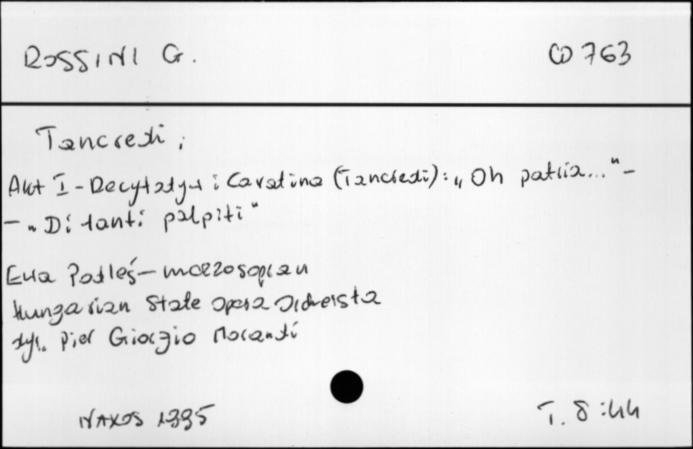 ROSSINI G. CD 763
Tancredi;
Akt I - Recytatyw i Cavatina (Tancredi): „Oh patria..." -
- „Di tanti palpiti"
Ewa Podleś - mezzosopran
Hungarian State Opera Orchestra
dyr. Pier Giorgio Morandi
NAXOS 1995 T. 8:44